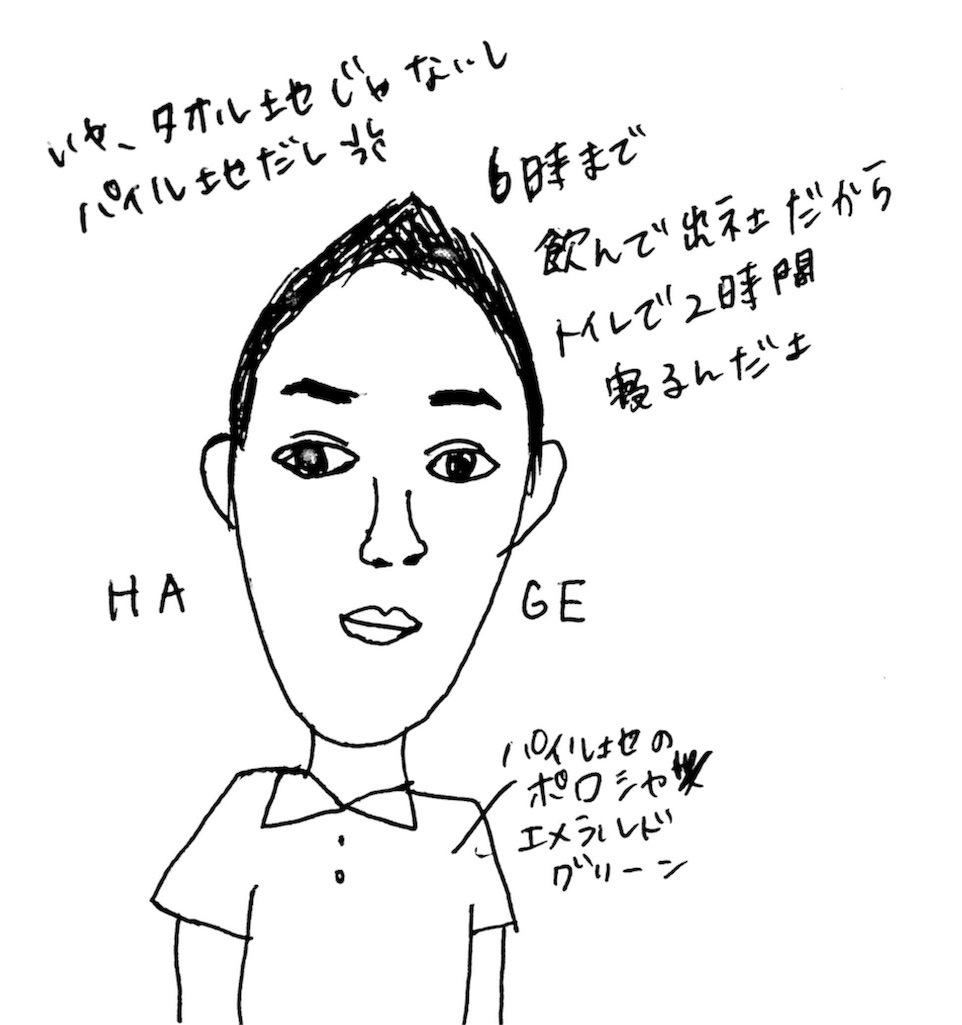 いや、タオル地じゃないし
パイル地だし
6時まで
飲んで出社だから
トイレで2時間
寝るんだよ
HA GE
パイル地の
ポロシャ
エメラルド
グリーン